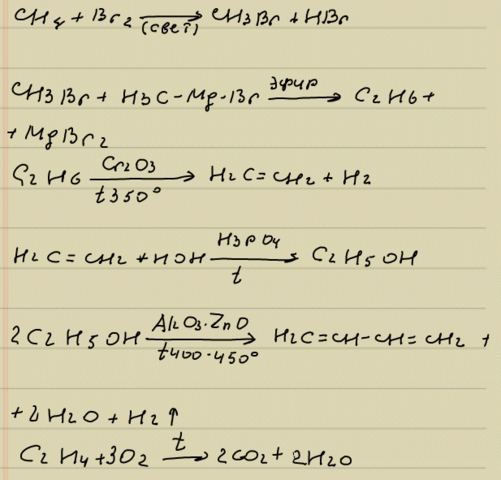 CH4 + Br2 →(свет) CH3Br + HBr
CH3Br + H3C-Mg-Br →эфир C2H6 +
+ MgBr2
C2H6 →Cr2O3 t350° H2C=CH2 + H2
H2C=CH2 + HOH →H3PO4 t C2H5OH
2C2H5OH →Al2O3·ZnO t400-450° H2C=CH-CH=CH2 +
+ 2H2O + H2↑
C2H4 + 3O2 →t 2CO2 + 2H2O